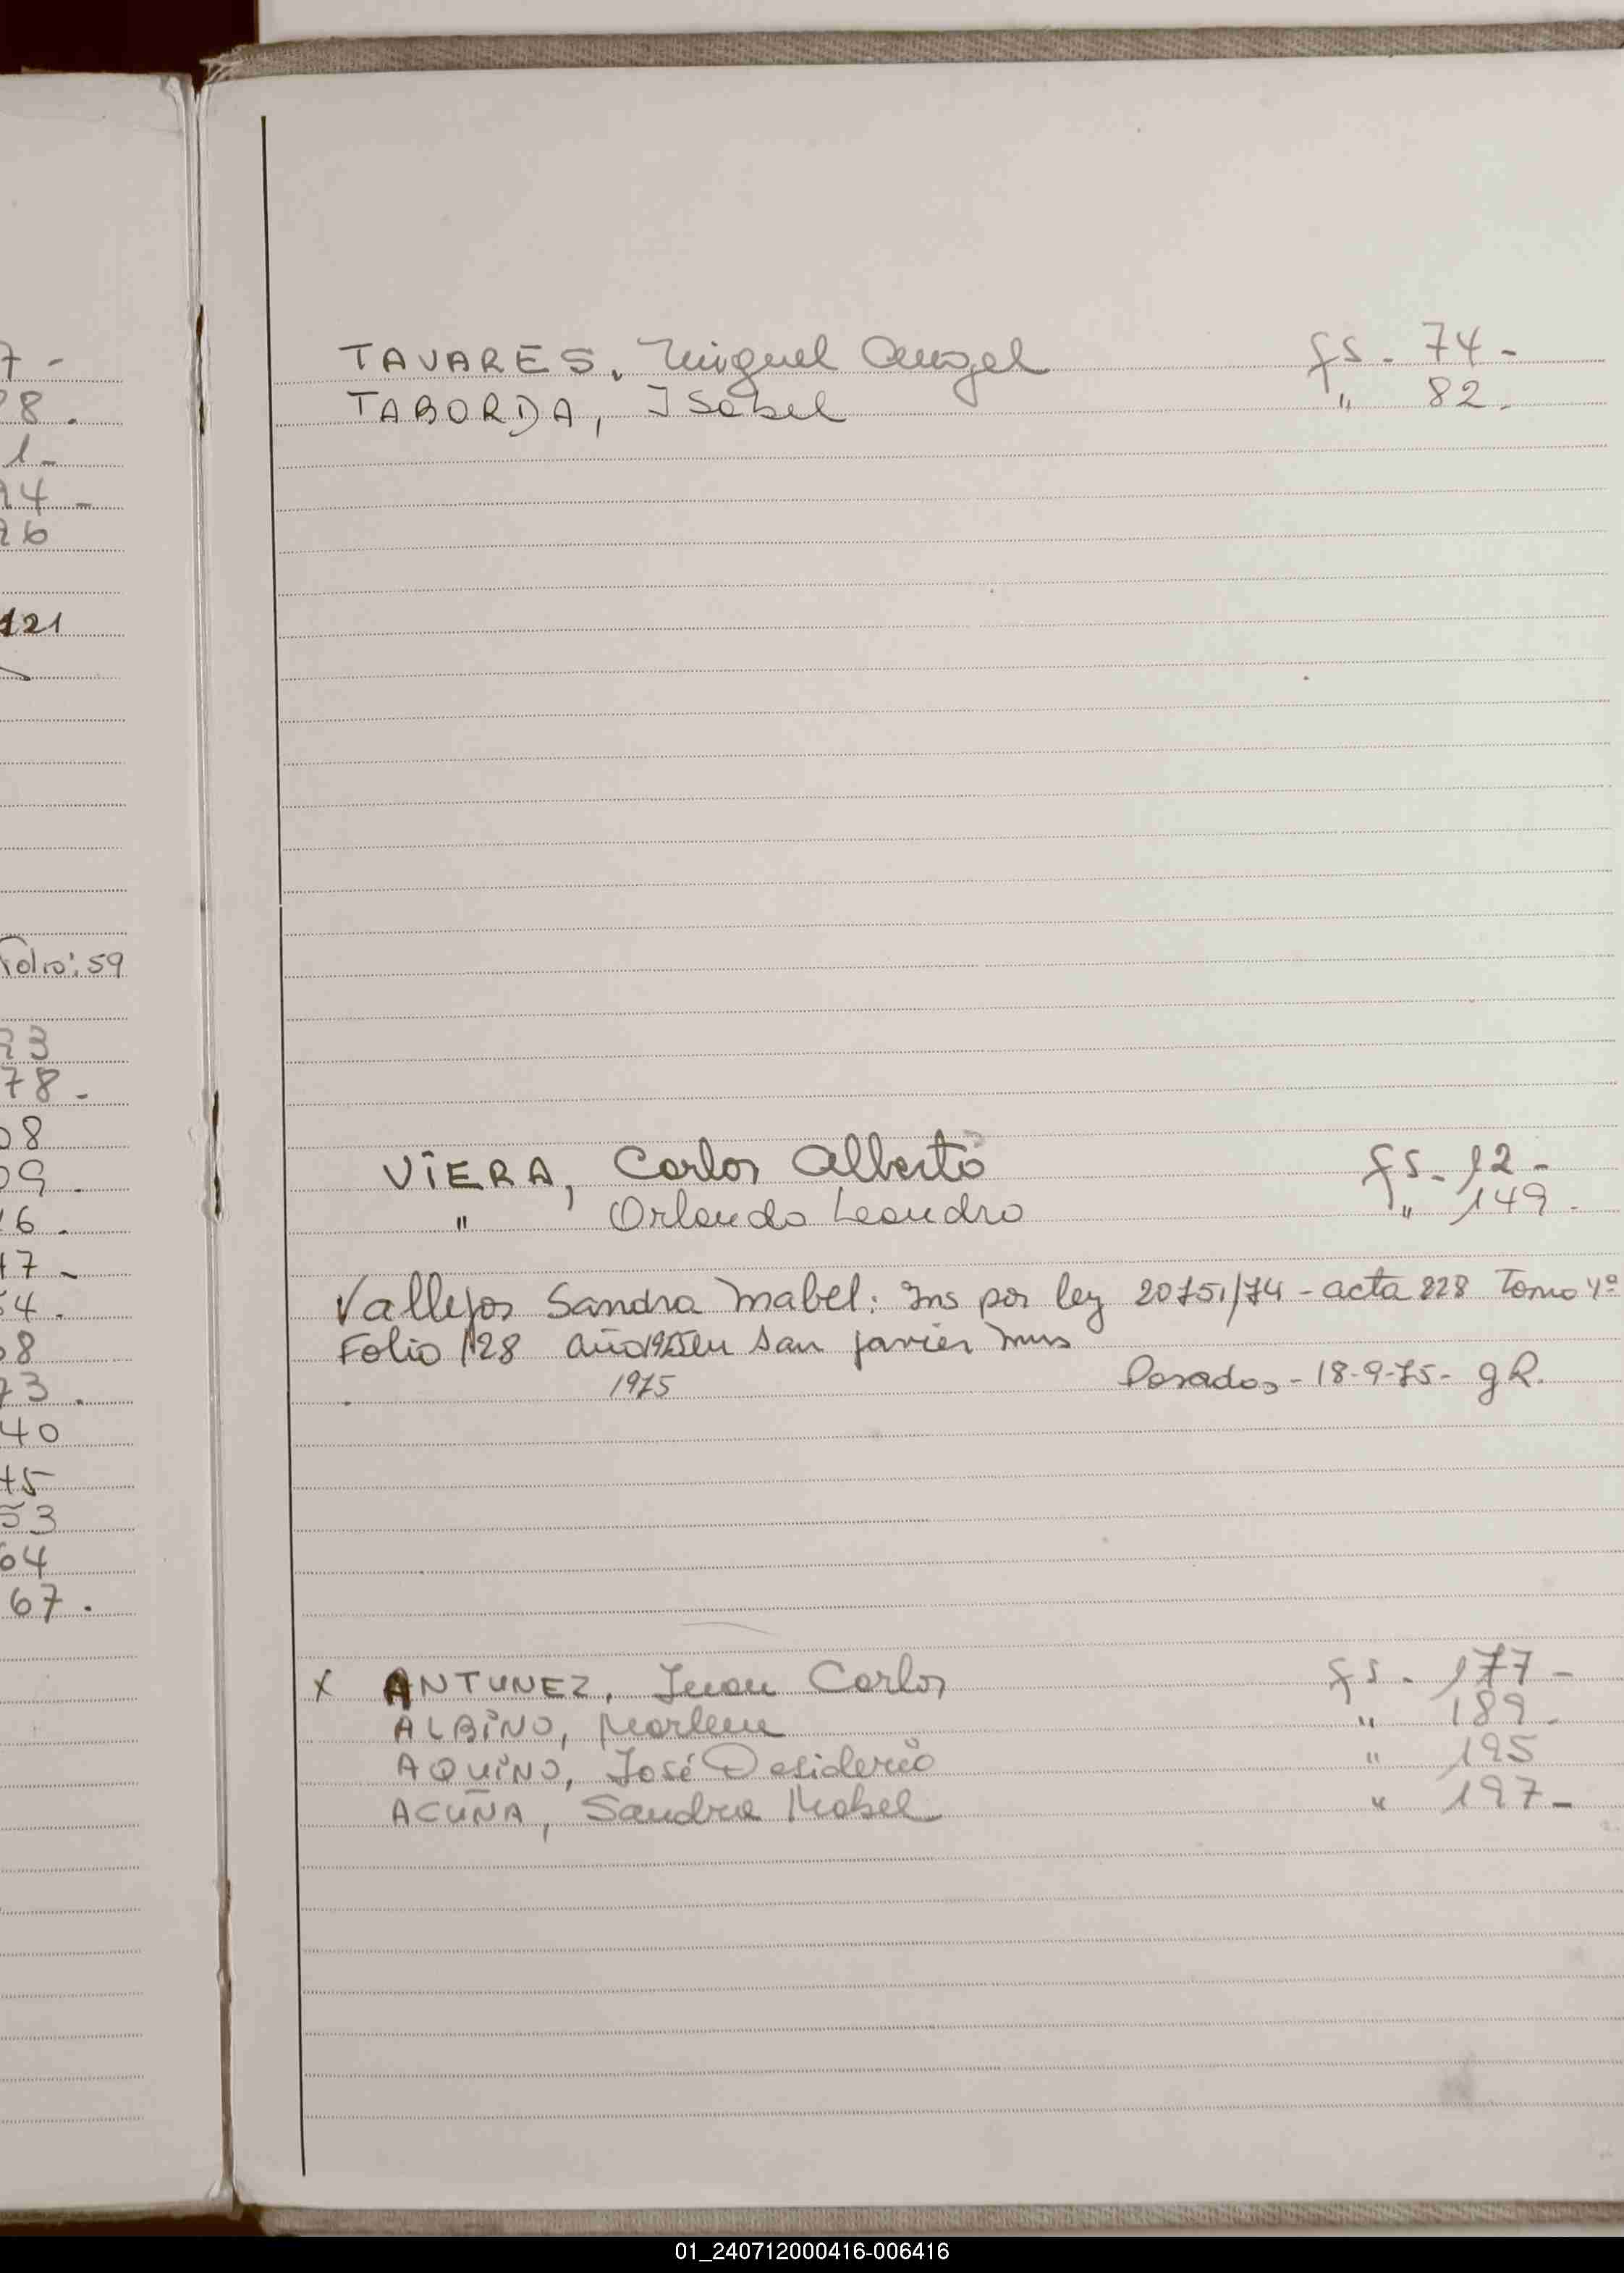 7 -
28.
1-
94 -
26
121
Folio: 59
23
78 -
08
09 -
16 -
47 -
54 -
08
73 .
40
45
53
64
67 .
TAVARES, Miguel Angel fs - 74 -
TABORDA, Isabel " 82 -
VIERA, Carlos Alberto fs - 12 -
" Orlando Leandro " 149 -
Vallejos Sandra Mabel: Ins por ley 20751/74 - acta 228 Tomo 4º
Folio 128 año 1975 en San Javier Mns
1975 Posadas - 18-9-75 - gR.
x ANTUNEZ, Juan Carlos fs - 177 -
ALBINO, Marlene " 189 -
AQUINO, José Desiderio " 195
ACUÑA, Sandra Mabel " 197 -
01_240712000416-006416